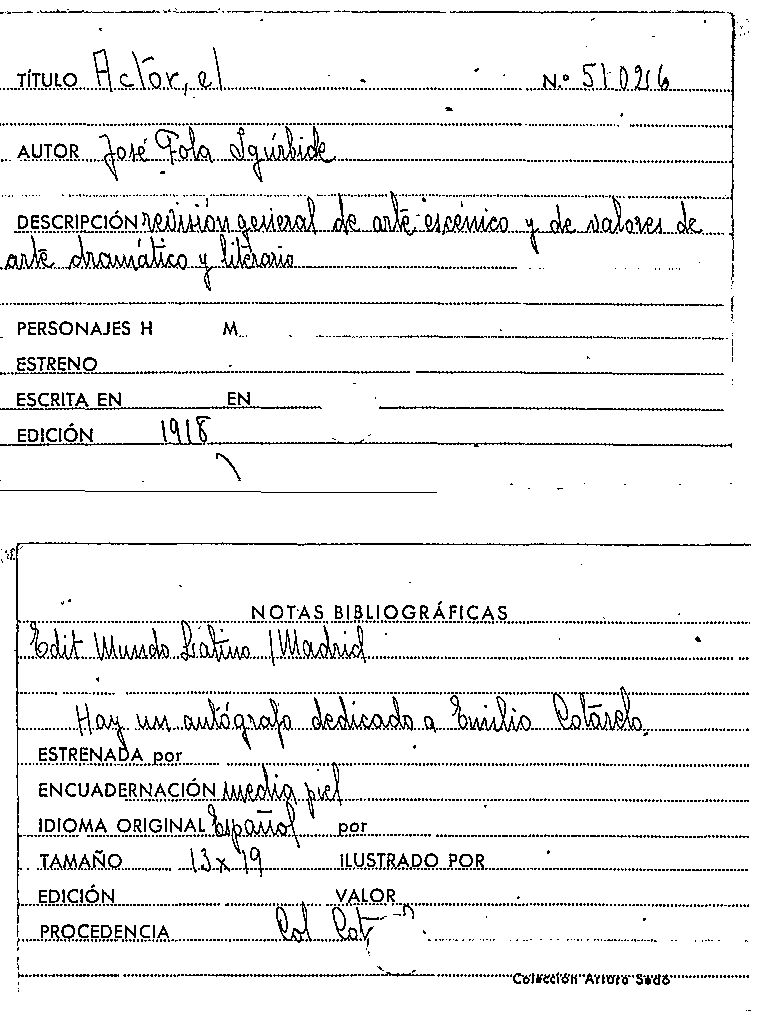 TÍTULO Actor, el N.º 51026
AUTOR José Fola Igúrbide
DESCRIPCIÓN revisión general de arte escénico y de valores de
arte dramático y literario
PERSONAJES H M.
ESTRENO
ESCRITA EN EN
EDICIÓN 1918
NOTAS BIBLIOGRÁFICAS
Edit Mundo Latino / Madrid
Hay un autógrafo dedicado a Emilio Cotarelo
ESTRENADA por
ENCUADERNACIÓN media piel
IDIOMA ORIGINAL Español por
TAMAÑO 13 x 19 ILUSTRADO POR
EDICIÓN VALOR
PROCEDENCIA Col Cot
Colección Arturo Sedó